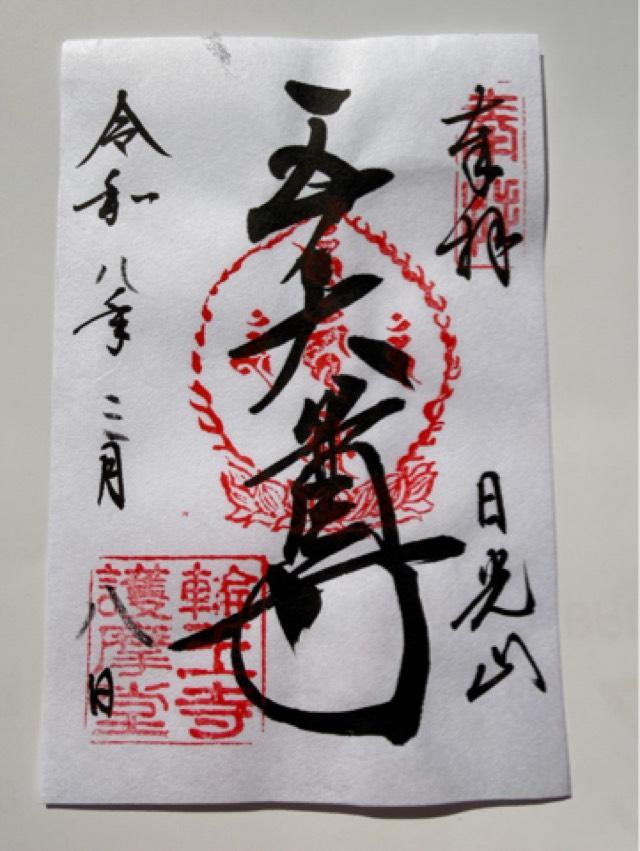 奉拝
日光山
五大尊
令和八年二月八日
輪王寺
護摩堂